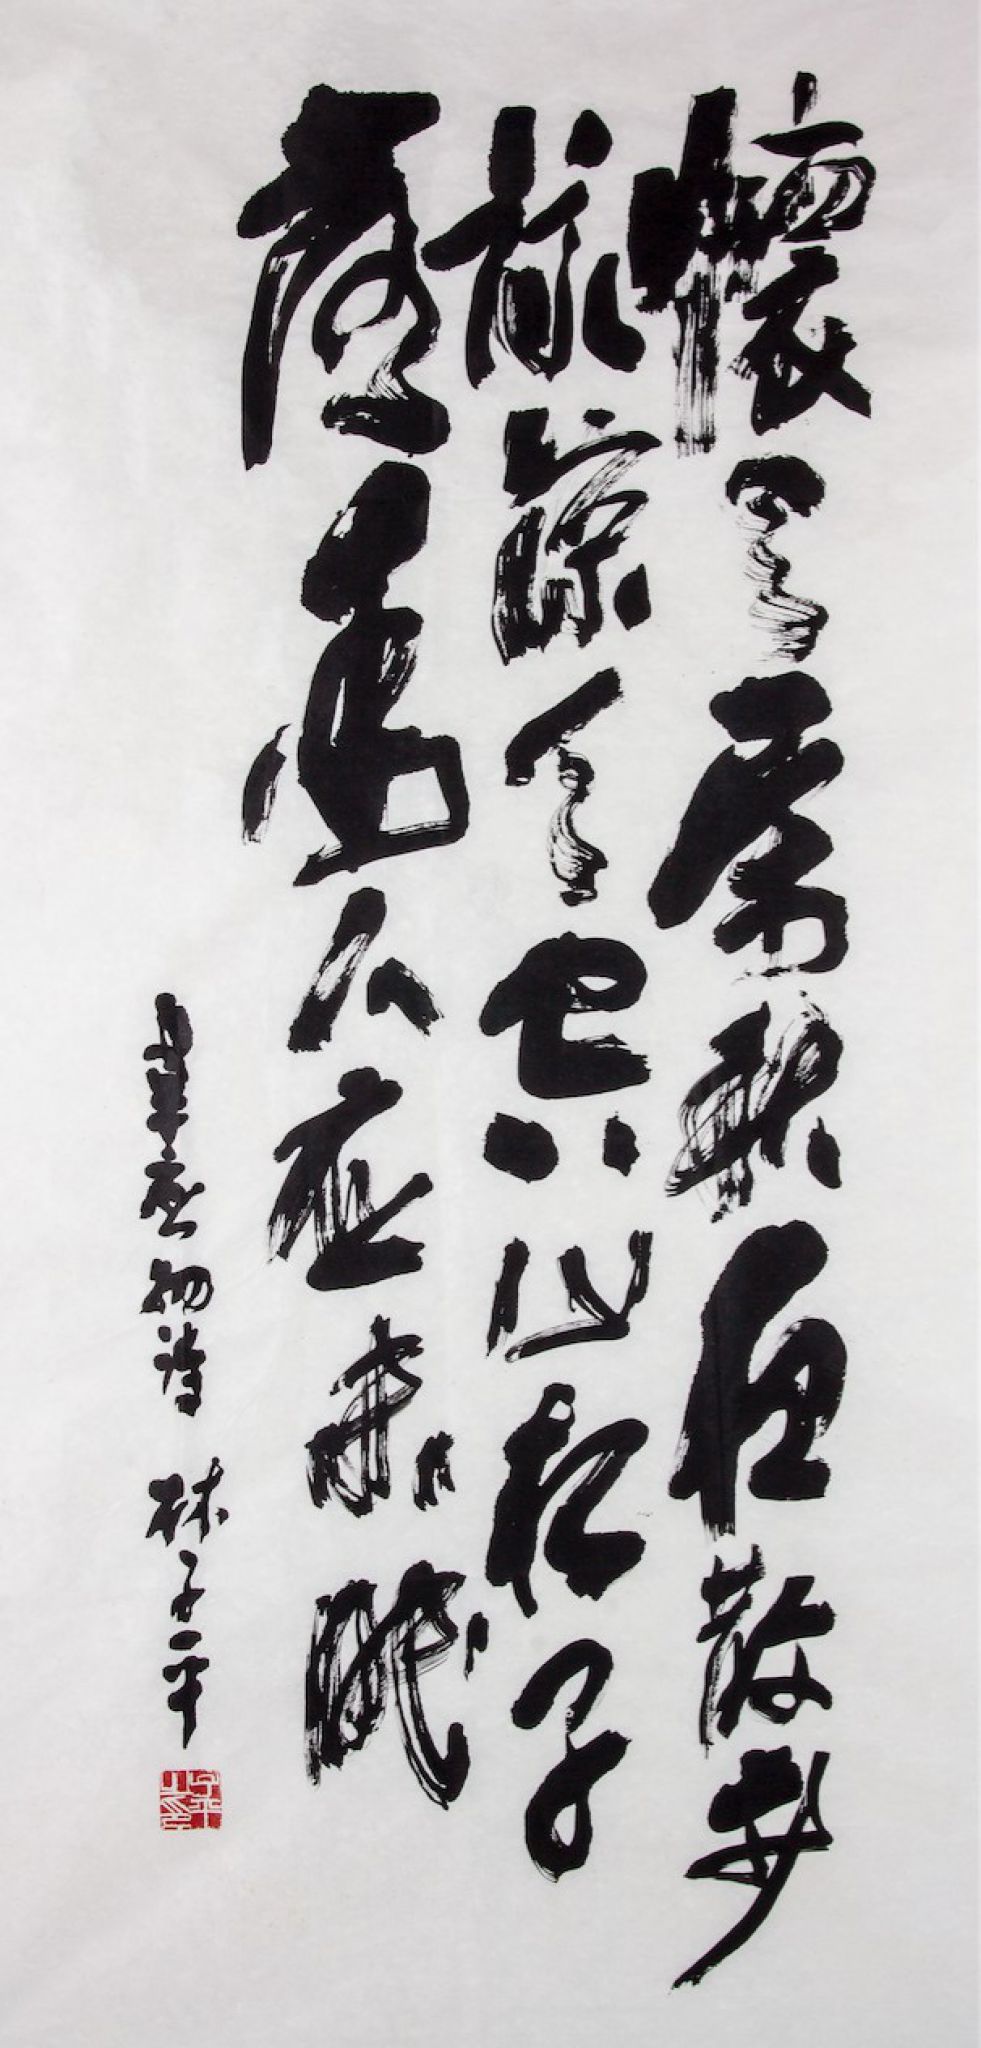 懷君屬秋夜散步
詠涼天空山松子
落幽人應未眠
韋應物詩 林子平
子平之印